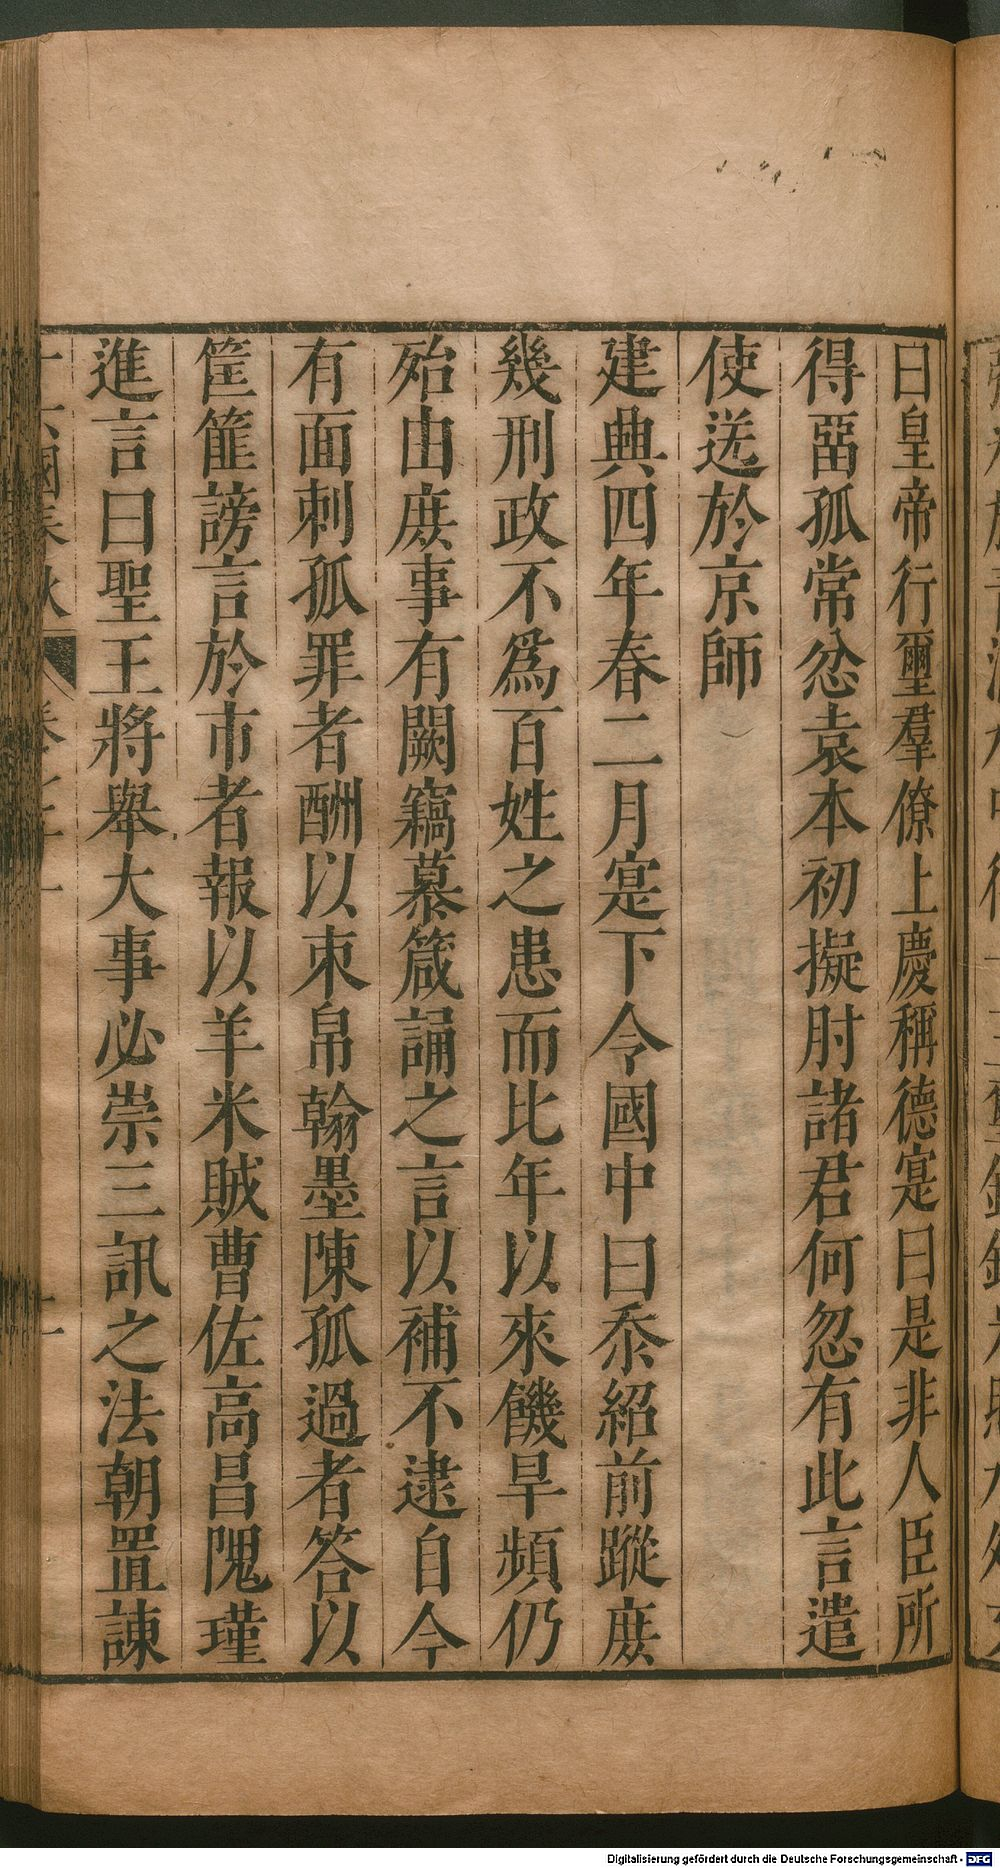 曰皇帝行璽羣僚上慶稱德寔曰是非人臣所
得畱孤常忿袁本初擬肘諸君何忽有此言遣
使送於京師
建興四年春二月寔下令國中曰忝紹前蹤庻
幾刑政不爲百姓之患而比年以來饑旱頻仍
殆由庻事有闕竊慕箴誦之言以補不逮自今
有面刺孤罪者酬以束帛翰墨陳孤過者答以
筐篚謗言於市者報以羊米賊曹佐高昌隗瑾
進言曰聖王將舉大事必崇三訊之法朝置諫
Digitalisierung gefördert durch die Deutsche Forschungsgemeinschaft - DFG